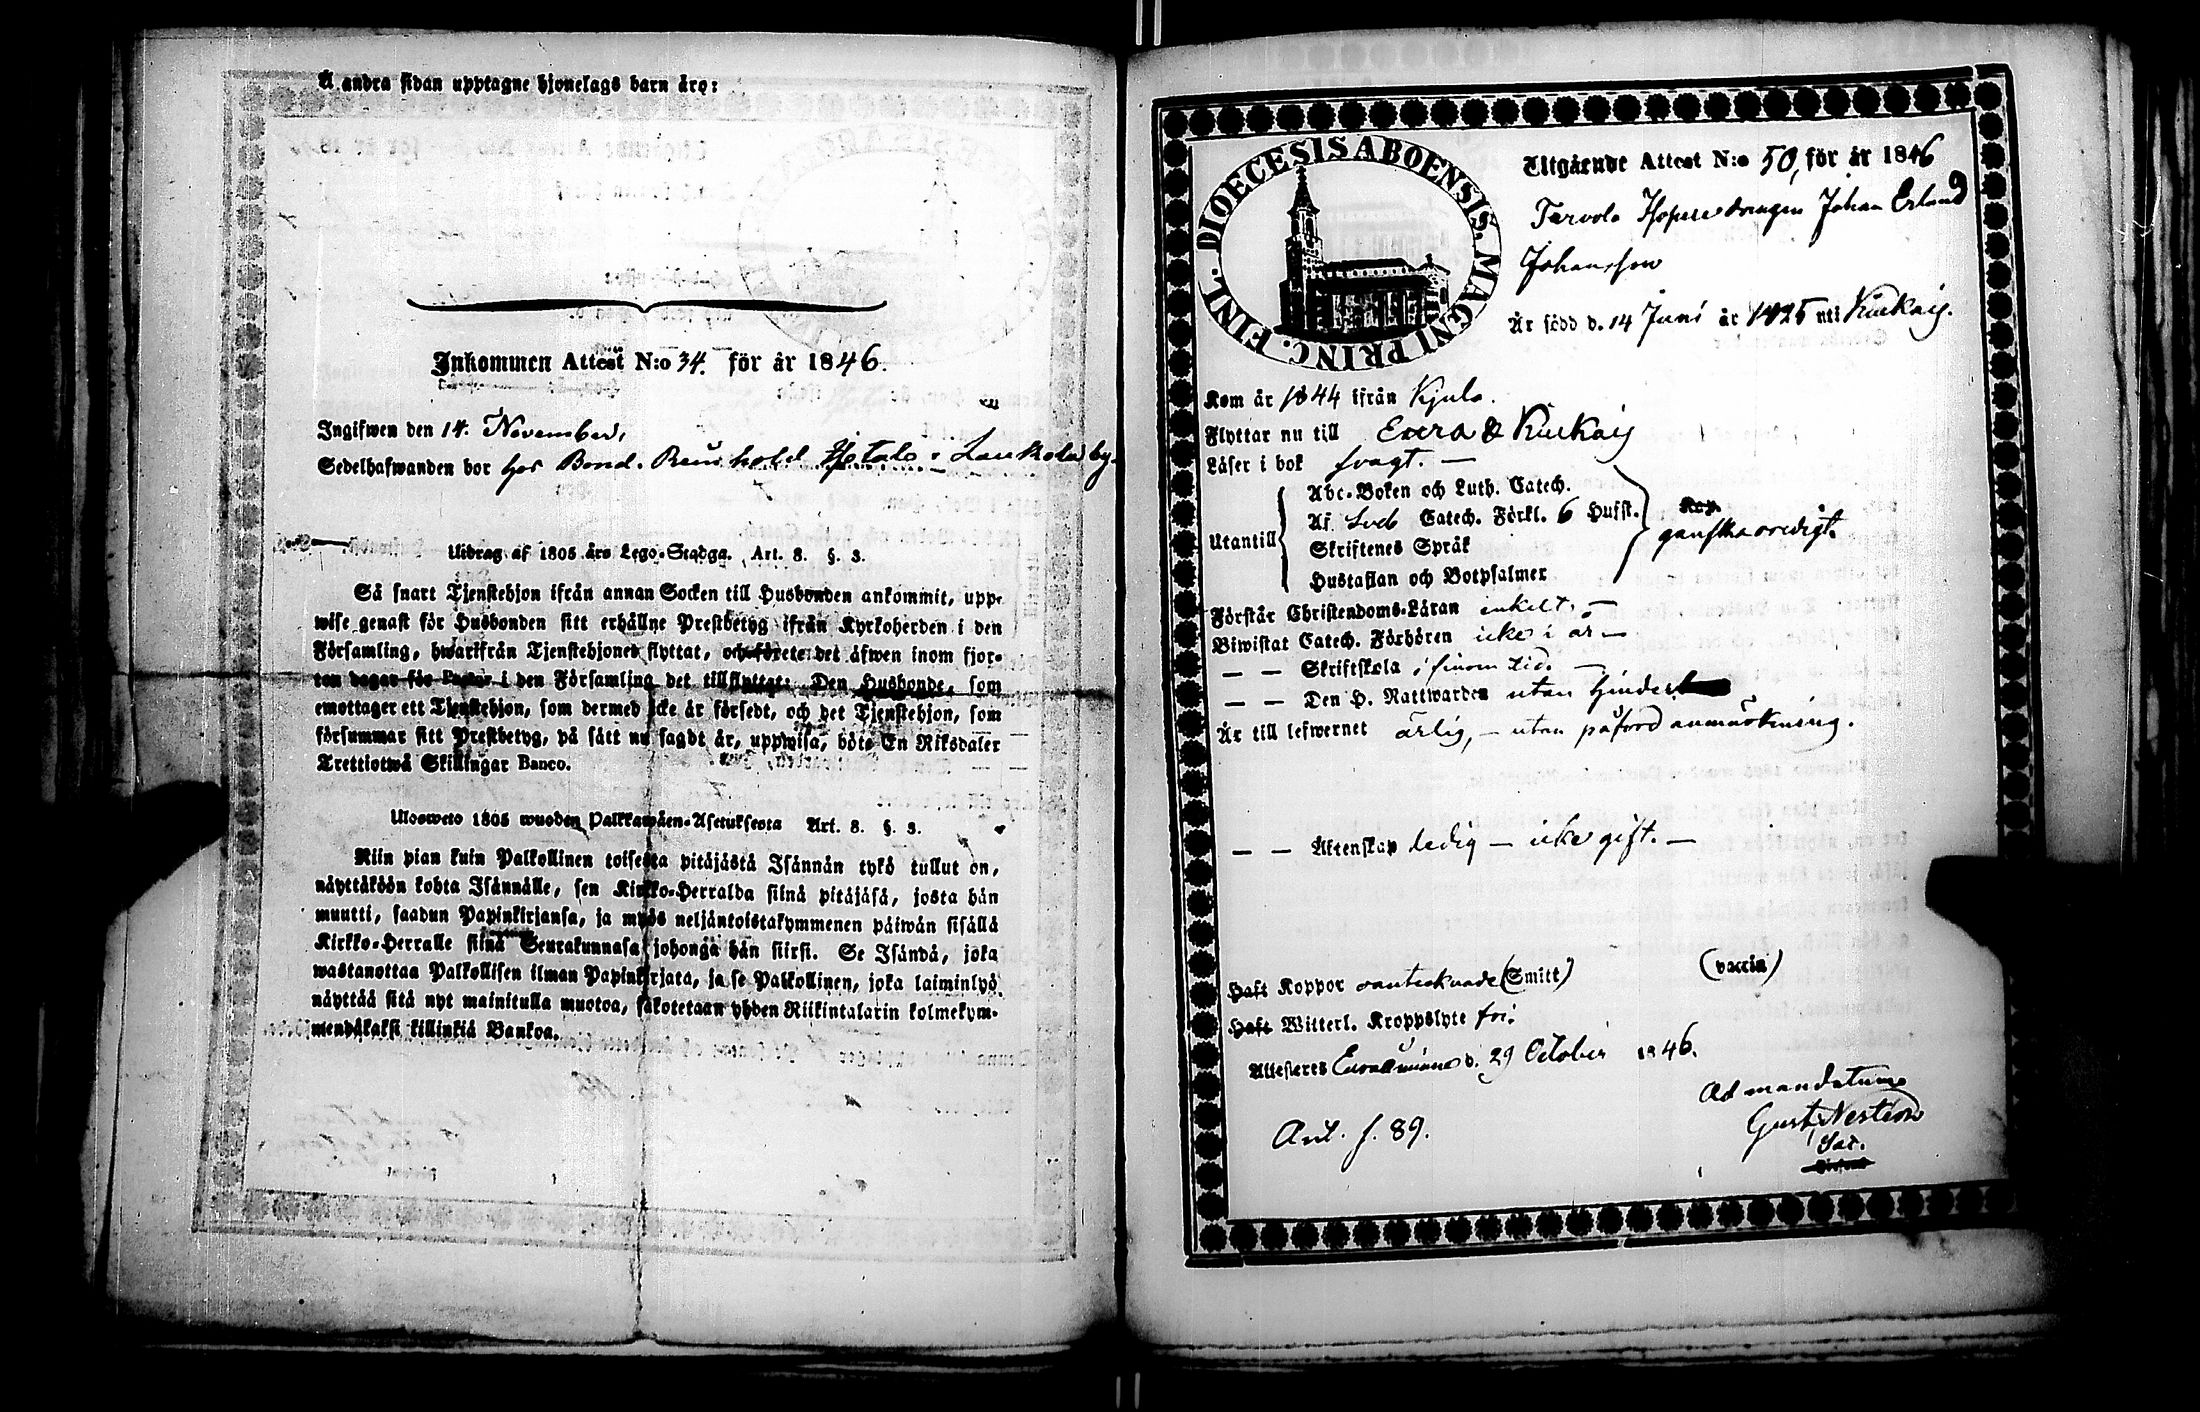 Å andra sidan upptagne hjonelags barn äro:
Inkommen Attest N:o 34. för år 1846.
Ingifwen den 14. November,
Sedelhafwanden bor hos Bond. Reinhold i by.
Utdrag af 1805 års Lego-Stadga. Art. 8. §. 3.
Så snart Tjenstehjon ifrån annan Socken till Husbonden ankommit, upp-
wise genast för Husbonden sitt erhållne Prestbetyg ifrån Kyrkoherden i den
Församling, hwarifrån Tjenstehjonet flyttat, och förete det äfwen inom fjor-
ton dagar för i den Församling det tillflyttat: Den Husbonde, som
emottager ett Tjenstehjon, som dermed icke är försedt, och det Tjenstehjon, som
försummar sitt Prestbetyg, på sätt nu sagdt är, uppwisa, böte En Riksdaler
Trettiotwå Skillingar Banco.
Ulosweto 1805 wuoden Palkkawäen-Asetuksesta Art. 8. §. 3.
Niin pian kuin Palkollinen toisesta pitäjästä Isännän tykö tullut on,
näyttäköön kohta Isännälle, sen Kirkko-Herralda siinä pitäjäsä, josta hän
muutti, saadun Papinkirjansa, ja myös neljäntoistakymmenen päiwän sisällä
Kirkko-Herralle siinä Seurakunnasa johonga hän siirsi. Se Isändä, joka
wastanottaa Palkollisen ilman Papinkirjata, ja se Palkollinen, joka laiminlyö
näyttää sitä nyt mainitulla muotoa, sakotetaan yhden Riikintalarin kolmekym-
mendäkaksi killinkiä Bankoa.
DIOECESIS ABOENSIS. MAGNI PRINC. FINL.
Utgående Attest N:o 50, för år 1846
drengen Johan Erland
Johansson
Är född d. 14 Juni år 1825 uti Kiukais.
Kom år 1844 ifrån Kjulo.
Flyttar nu till Eura & Kiukais
Läser i bok svagt. —
Utantill
Abc-Boken och Luth. Catech.
Af Sveb Catech. Förkl. 6 Hufst.
Skriftenes Språk
Hustaflan och Botpsalmer
ganska oredigt.
Förstår Christendoms-Läran enkelt. —
Biwistat Catech. Förhören icke i år —
— — Skriftskola i sinom tid. —
— — Den H. Nattwarden utan hinder
Är till lefwernet ärlig, — utan påförd anmärkning.
— — Äktenskap ledig — icke gift. —
Haft Koppor oantecknade (Smitt) (vaccin)
Haft Witterl. Kroppslyte fri.
Attesteres d. 29 October 1846.
Ad mandatum
Gust. Nestéon
Sac.
Ant. f. 89.